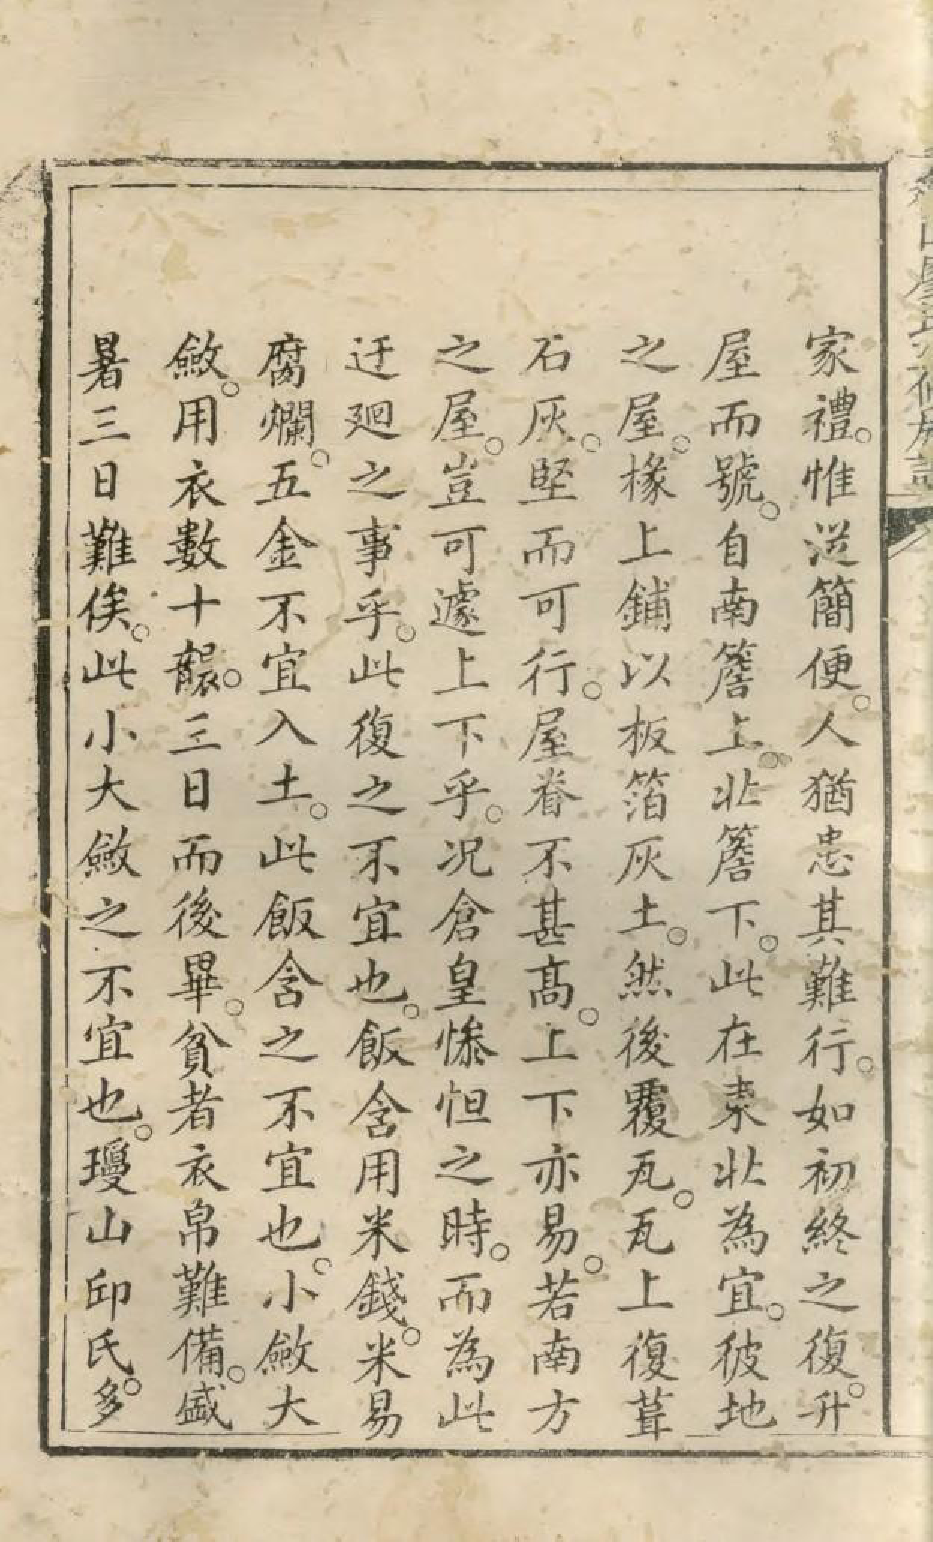 家禮。惟從簡便。人猶患其難行。如初終之復。升
屋而號。自南簷上。北簷下。此在東北為宜。彼地
之屋。椽上鋪以板箔灰土。然後覆瓦。瓦上復葺
石灰。堅而可行。屋脊不甚髙。上下亦易。若南方
之屋。豈可遽上下乎。况倉皇慘怛之時。而為此
迂廻之事乎。此復之不宜也。飯含用米錢。米易
腐爛。五金不宜入土。此飯含之不宜也。小斂大
斂。用衣數十襲。三日而後畢。貧者衣帛難備。盛
暑三日難俟。此小大斂之不宜也。瓊山邱氏。多